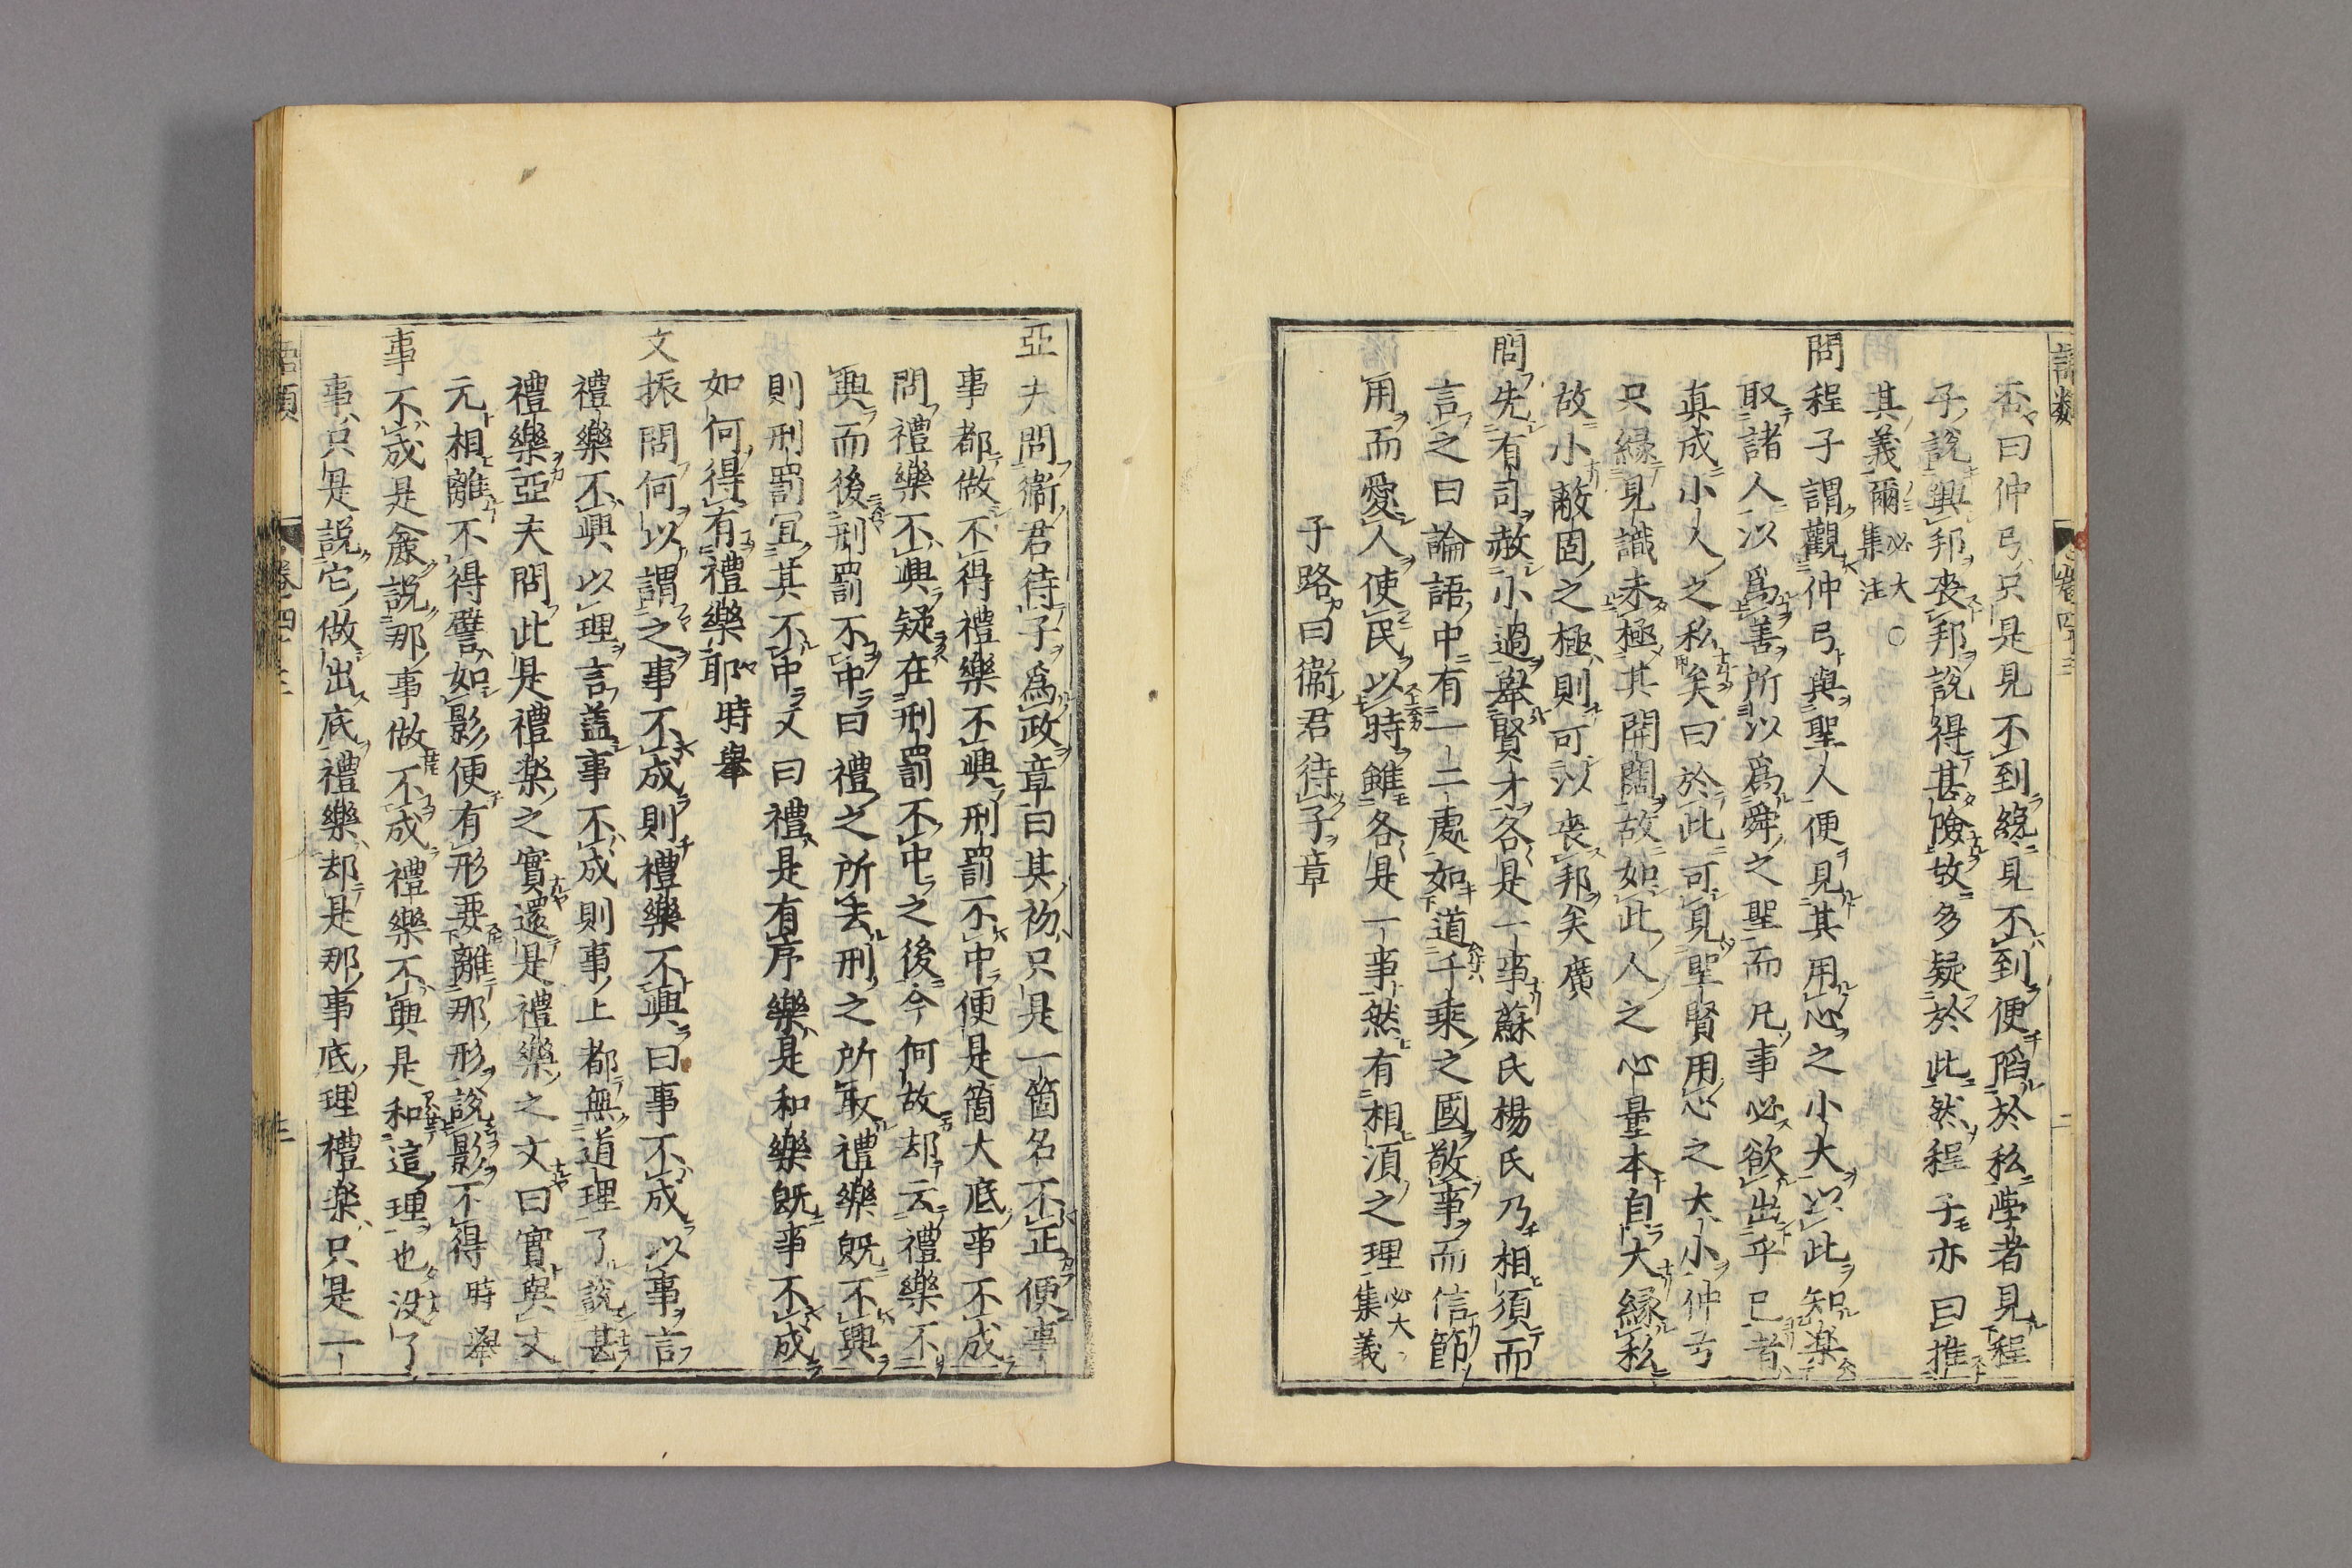 語類 卷四十三 二
否曰仲弓只是見不到纔見不到便陷於私學者見程
子說興邦喪邦說得甚險故多疑於此然程子亦曰推
其義爾必大集注○
問程子謂觀仲弓與聖人便見其用心之小大以此知樂
取諸人以爲善所以爲舜之聖而凡事必欲出乎己者
真成小人之私矣曰於此可見聖賢用心之大小仲弓
只緣見識未極其開闊故如此人之心量本自大緣私
故小蔽固之極則可以喪邦矣廣
問先有司赦小過舉賢才各是一事蘇氏楊氏乃相須而
言之曰論語中有一二處如道千乘之國敬事而信節
用而愛人使民以時雖各是一事然有相湏之理必大集義
子路曰衞君待子章
亞夫問衞君待子爲政章曰其初只是一箇名不正便事
事都做不得禮樂不興刑罰不中便是箇大底事不成
問禮樂不興疑在刑罰不中之後今何故却云禮樂不
興而後刑罰不中曰禮之所去刑之所取禮樂旣不興
則刑罰宜其不中又曰禮是有序樂是和樂既事不成
如何得有禮樂耶時舉
文振問何以謂之事不成則禮樂不興曰事不成以事言
禮樂不興以理言蓋事不成則事上都無道理了說甚
禮樂亞夫問此是禮樂之實還是禮樂之文曰實與文
元相離不得譬如影便有形要離那形說影不得時舉
事不成是麄說那事做不成禮樂不興是和這理也沒了
事只是說它做出底禮樂却是那事底理禮樂只是一
語類 卷四十三 三